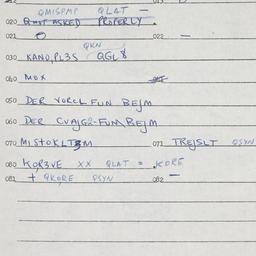 QMISPMP QLAT —
020 QMST ASKED PROPERLY .
021 O 022 —
QKN
030 KANO, P13S QGL 8
040 MOX
050 DER VORCL FUN BEJM
060 DER CVAJG2-FUM BEJM
070 MISTOKLTBM 071 TREJSLT QSYN
080 KOR3VE XX QLAT = KORE
081 + QKORE PSYN 082 —